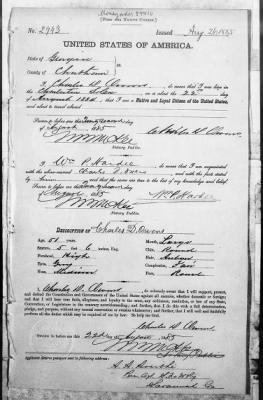 [FOR THE NATIVE CITIZEN.]
No. 2943 Issued Aug. 26, 1885
UNITED STATES OF AMERICA.
State of Georgia
County of Chatham
I, Charles D. Owens, do swear, that I was born in
on or about the 22
day
of August 1834, that I am a Native and Loyal Citizen of the United States,
and about to travel abroad.
Sworn to before me this
of August 1885
Charles D. Owens
Notary Public.
I, Wm P. Hardee, do swear, that I am acquainted
with the above-named Charles D. Owens, and with the facts stated
by him, and that the same are true to the best of my knowledge and belief.
Sworn to before me this
of August 1885
Wm P. Hardee
Notary Public.
DESCRIPTION OF Charles D. Owens
Age, 51 years. Mouth, Large
Stature, 5 feet 6 inches, Eng. Chin, Round
Forehead, High Hair,
Eyes, Gray Complexion, Fair
Nose, Medium Face, Round
I, Charles D. Owens, do solemnly swear that I will support, protect,
and defend the Constitution and Government of the United States against all enemies, whether domestic or foreign;
and that I will bear true faith, allegiance, and loyalty to the same, any ordinance, resolution, or law of any State,
Convention, or Legislature to the contrary notwithstanding; and further, that I do this with a full determination,
pledge, and purpose, without any mental reservation or evasion whatsoever; and further, that I will well and faithfully
perform all the duties which may be required of me by law. So help me God.
Charles D. Owens
Sworn to before me this
22d of August 1885
Notary Public
Applicant desires passport to be sent to following address:
Savannah Ga